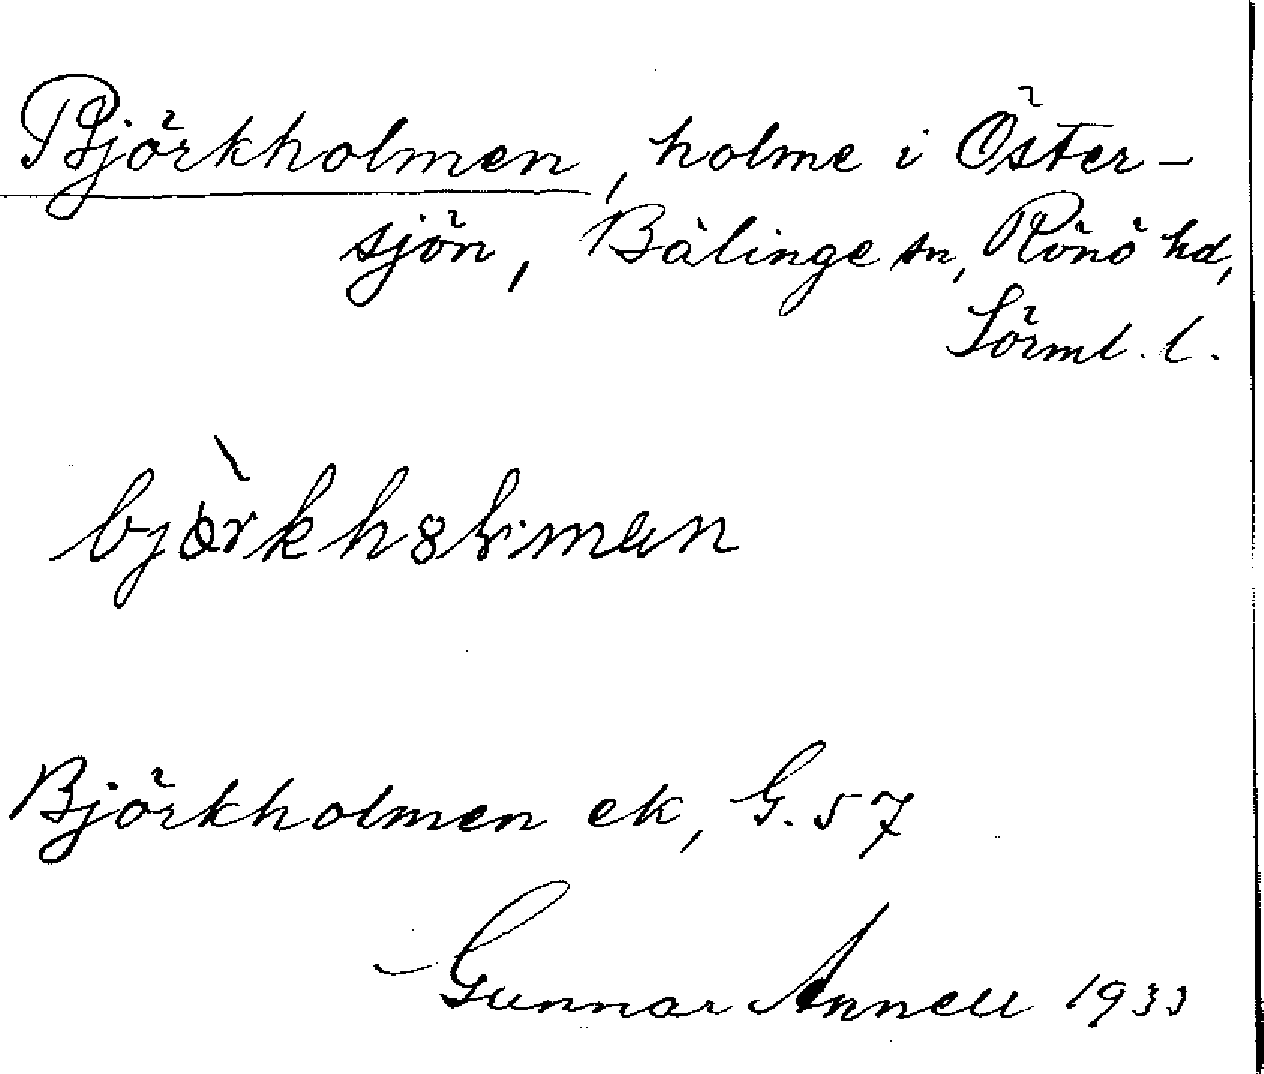 Björkholmen, holme i Öster-
sjön, Bälinge sn, Rönö hd,
Sörml. l.
Björkholmen ek, G. 57
Gunnar Annell 1933